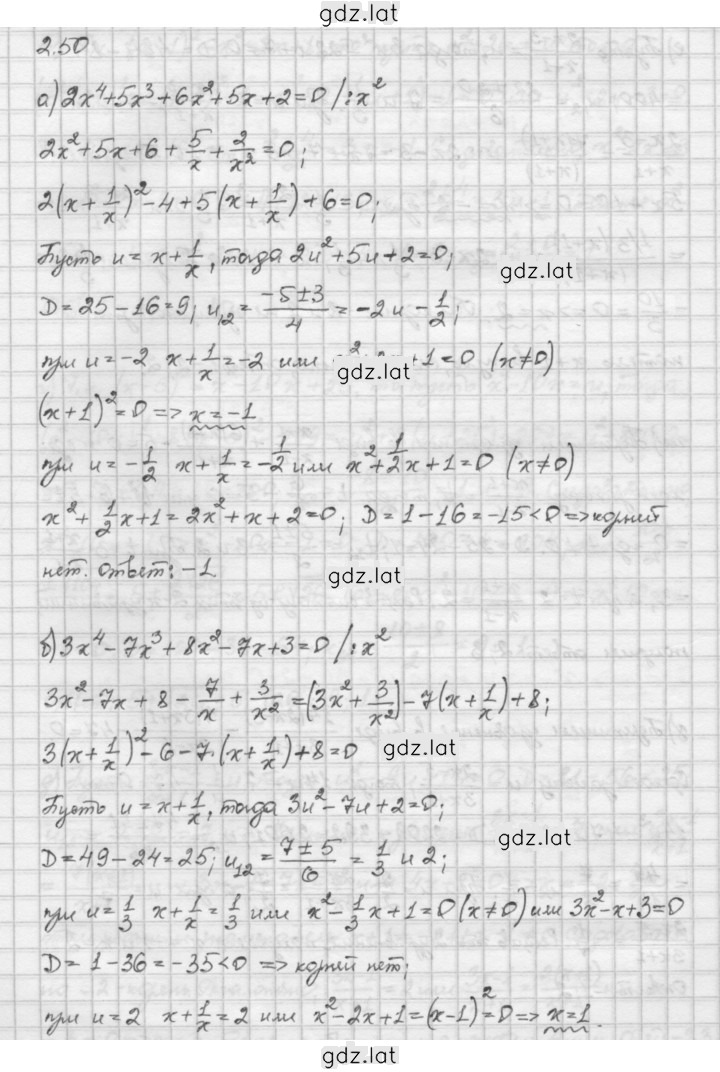 gdz.lat
2.50
а) 2x⁴+5x³+6x²+5x+2=0 /:x²
2x²+5x+6+5/x+2/x²=0;
2(x+1/x)²-4+5(x+1/x)+6=0;
Пусть u=x+1/x, тогда 2u²+5u+2=0;
gdz.lat
D=25-16=9; u₁₂=(-5±3)/4=-2 и -1/2;
при u=-2 x+1/x=-2 или +1=0 (x≠0)
gdz.lat
(x+1)²=0=>x=-1
при u=-1/2 x+1/x=-1/2 или x²+1/2x+1=0 (x≠0)
x²+1/2x+1=2x²+x+2=0; D=1-16=-15<0=>корней
нет. ответ: -1
gdz.lat
б) 3x⁴-7x³+8x²-7x+3=0 /:x²
3x²-7x+8-7/x+3/x²=(3x²+3/x²)-7(x+1/x)+8;
3(x+1/x)²-6-7·(x+1/x)+8=0
gdz.lat
Пусть u=x+1/x, тогда 3u²-7u+2=0;
gdz.lat
D=49-24=25; u₁₂=(7±5)/6=1/3 и 2;
при u=1/3 x+1/x=1/3 или x²-1/3x+1=0 (x≠0) или 3x²-x+3=0
D=1-36=-35<0 => корней нет;
при u=2 x+1/x=2 или x²-2x+1=(x-1)²=0=>x=1.
gdz.lat